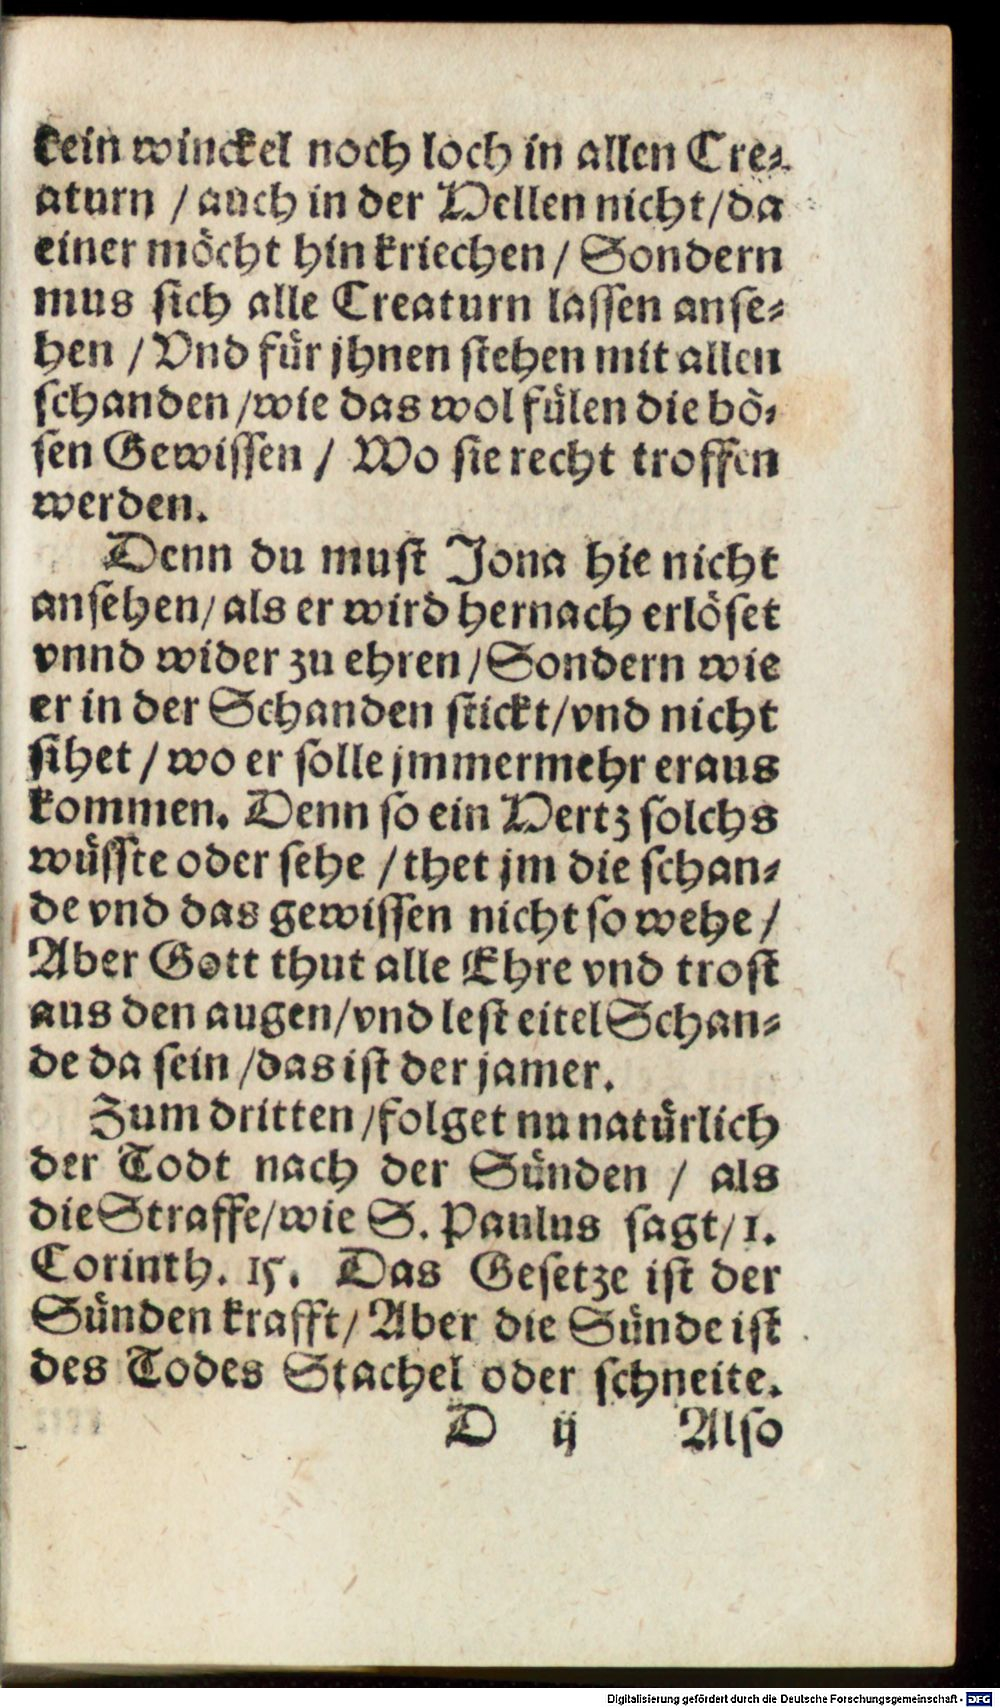 kein winckel noch loch in allen Cre⸗
aturn / auch in der Hellen nicht / da
einer möcht hin kriechen / Sondern
mus sich alle Creaturn lassen anse⸗
hen / Vnd für jhnen stehen mit allen
schanden / wie das wol fülen die bö⸗
sen Gewissen / Wo sie recht troffen
werden.
Denn du must Jona hie nicht
ansehen / als er wird hernach erlöset
vnnd wider zu ehren / Sondern wie
er in der Schanden stickt / vnd nicht
sihet / wo er solle jmmermehr eraus
kommen. Denn so ein Hertz solchs
wüsste oder sehe / thet jm die schan⸗
de vnd das gewissen nicht so wehe /
Aber Gott thut alle Ehre vnd trost
aus den augen / vnd lest eitel Schan⸗
de da sein / das ist der jamer.
Zum dritten / folget nu natürlich
der Todt nach der Sünden / als
die Straffe / wie S. Paulus sagt / 1.
Corinth. 15. Das Gesetze ist der
Sünden krafft / Aber die Sünde ist
des Todes Stachel oder schneite.
D ij Also
Digitalisierung gefördert durch die Deutsche Forschungsgemeinschaft - DFG